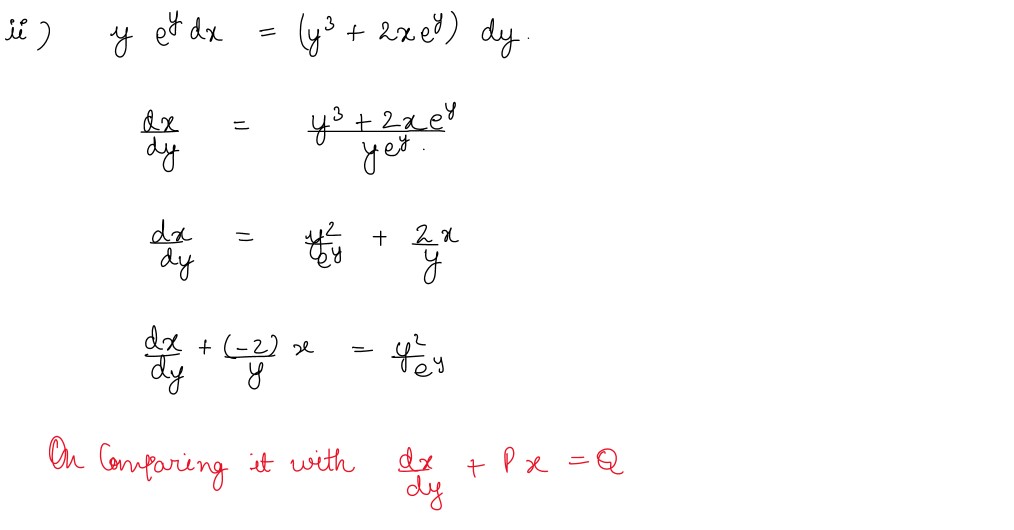 ii) y e^y dx = (y^3 + 2xe^y) dy.
dx/dy = (y^3 + 2xe^y)/(ye^y).
dx/dy = y^2/e^y + 2/y x
dx/dy + (-2)/y x = y^2/e^y
On Comparing it with dx/dy + Px = Q